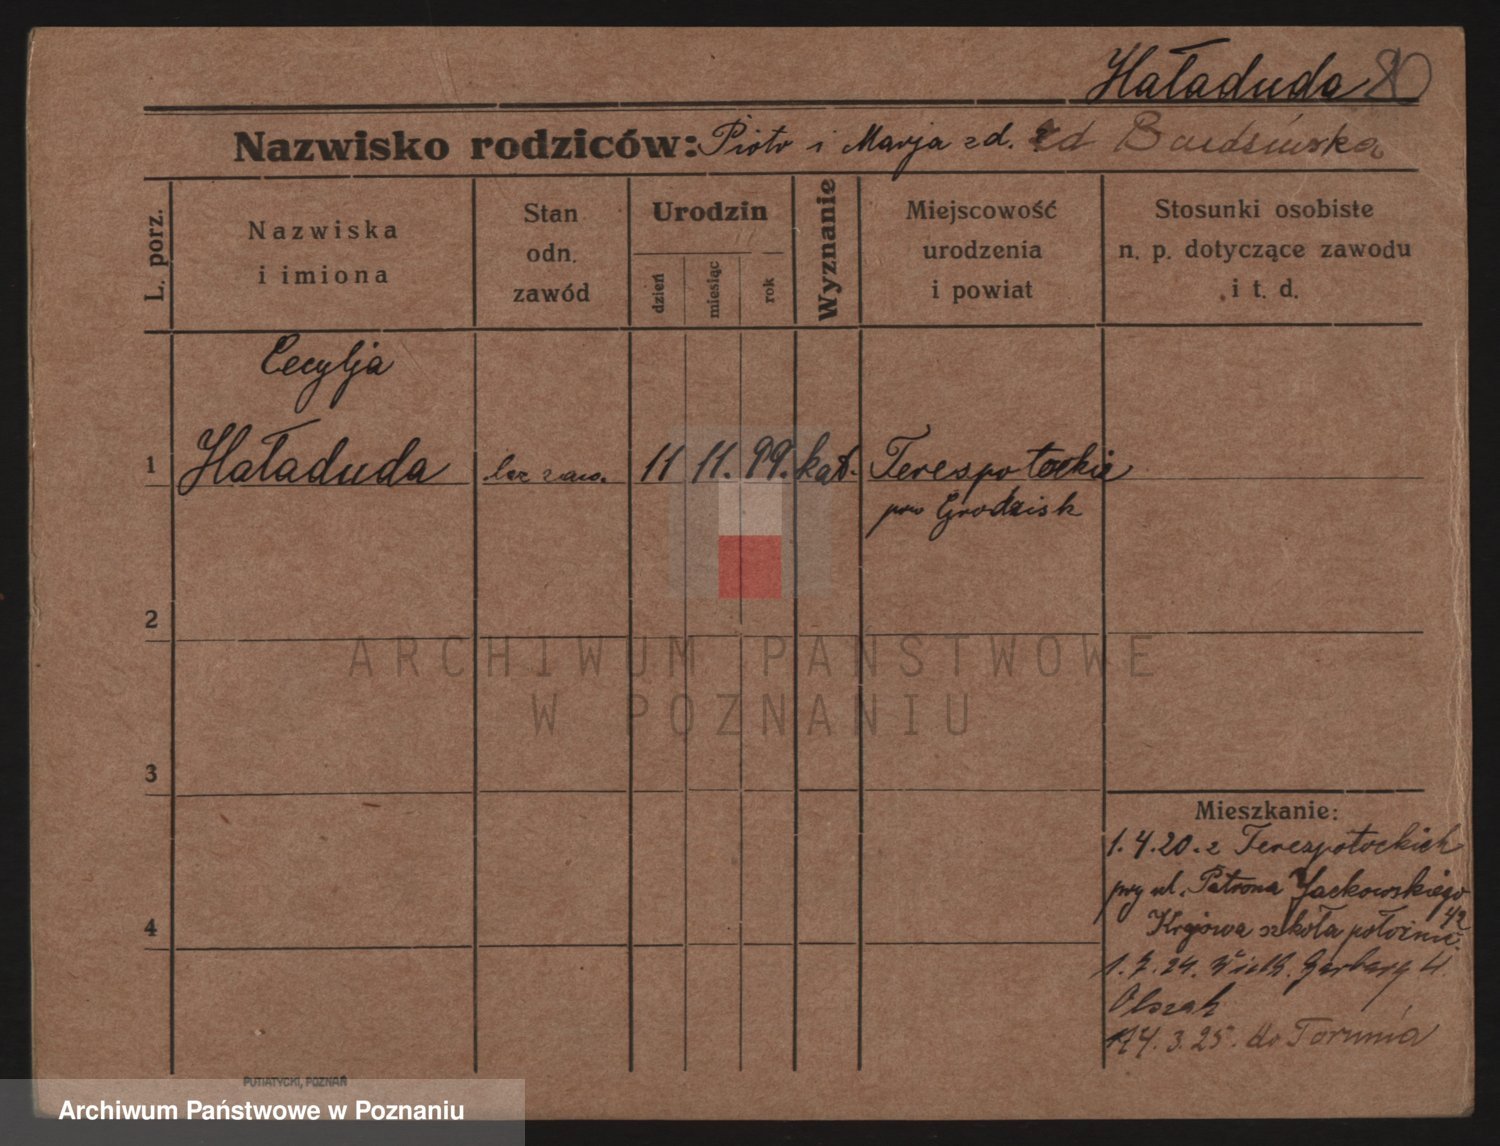 Haładuda
Nazwisko rodziców: Piotr i Marja z d.
L. porz.
Nazwiska
i imiona
Stan
odn.
zawód
Urodzin
dzień
miesiąc
rok
Wyznanie
Miejscowość
urodzenia
i powiat
Stosunki osobiste
n. p. dotyczące zawodu
i t. d.
Cecylja
1 Haładuda bez zaw. 11 11. 99. kat. Terespotockie
pow Grodzisk
2
3
4
Mieszkanie:
1.4.20. z Terespotockich
przy ul. Patrona Jackowskiego
42
Krajowa szkoła położnic.
Wielk. Garbary
Olszak
14.3.25. do Torunia
PUTIATYCKI, POZNAŃ
ARCHIWUM PAŃSTWOWE
W POZNANIU
Archiwum Państwowe w Poznaniu